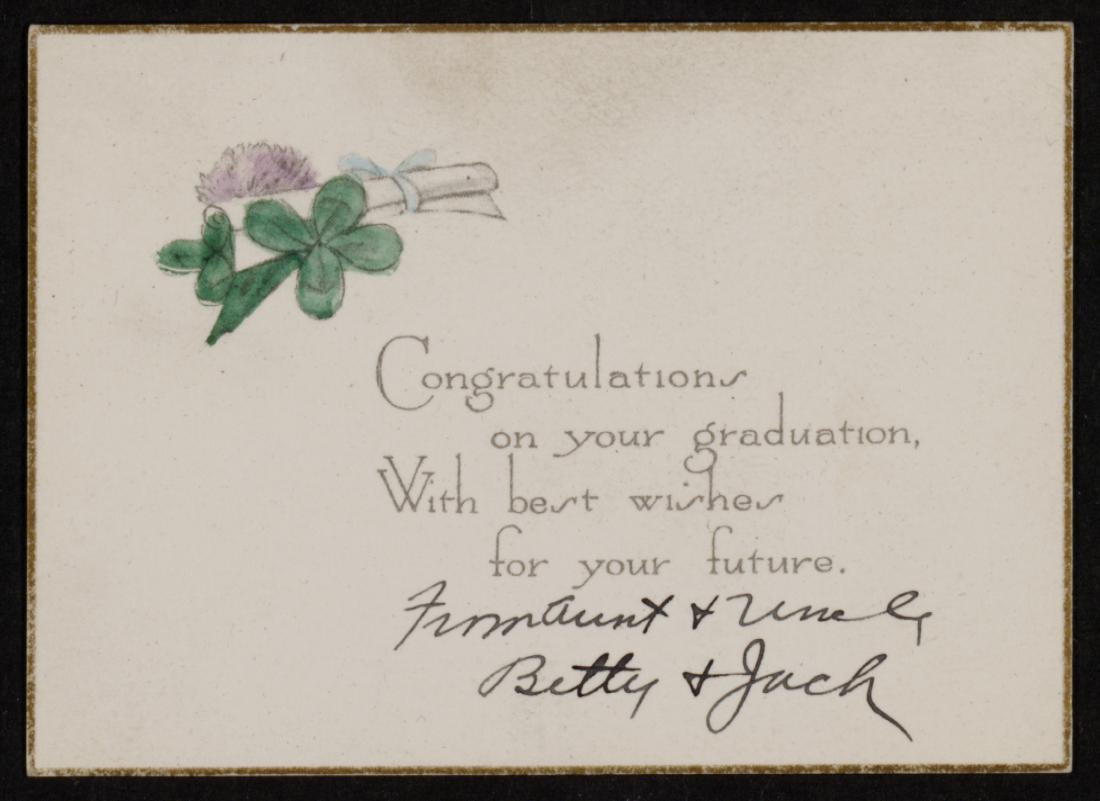 Congratulations
on your graduation,
With best wishes
for your future.
From Aunt & Uncle,
Betty & Jack